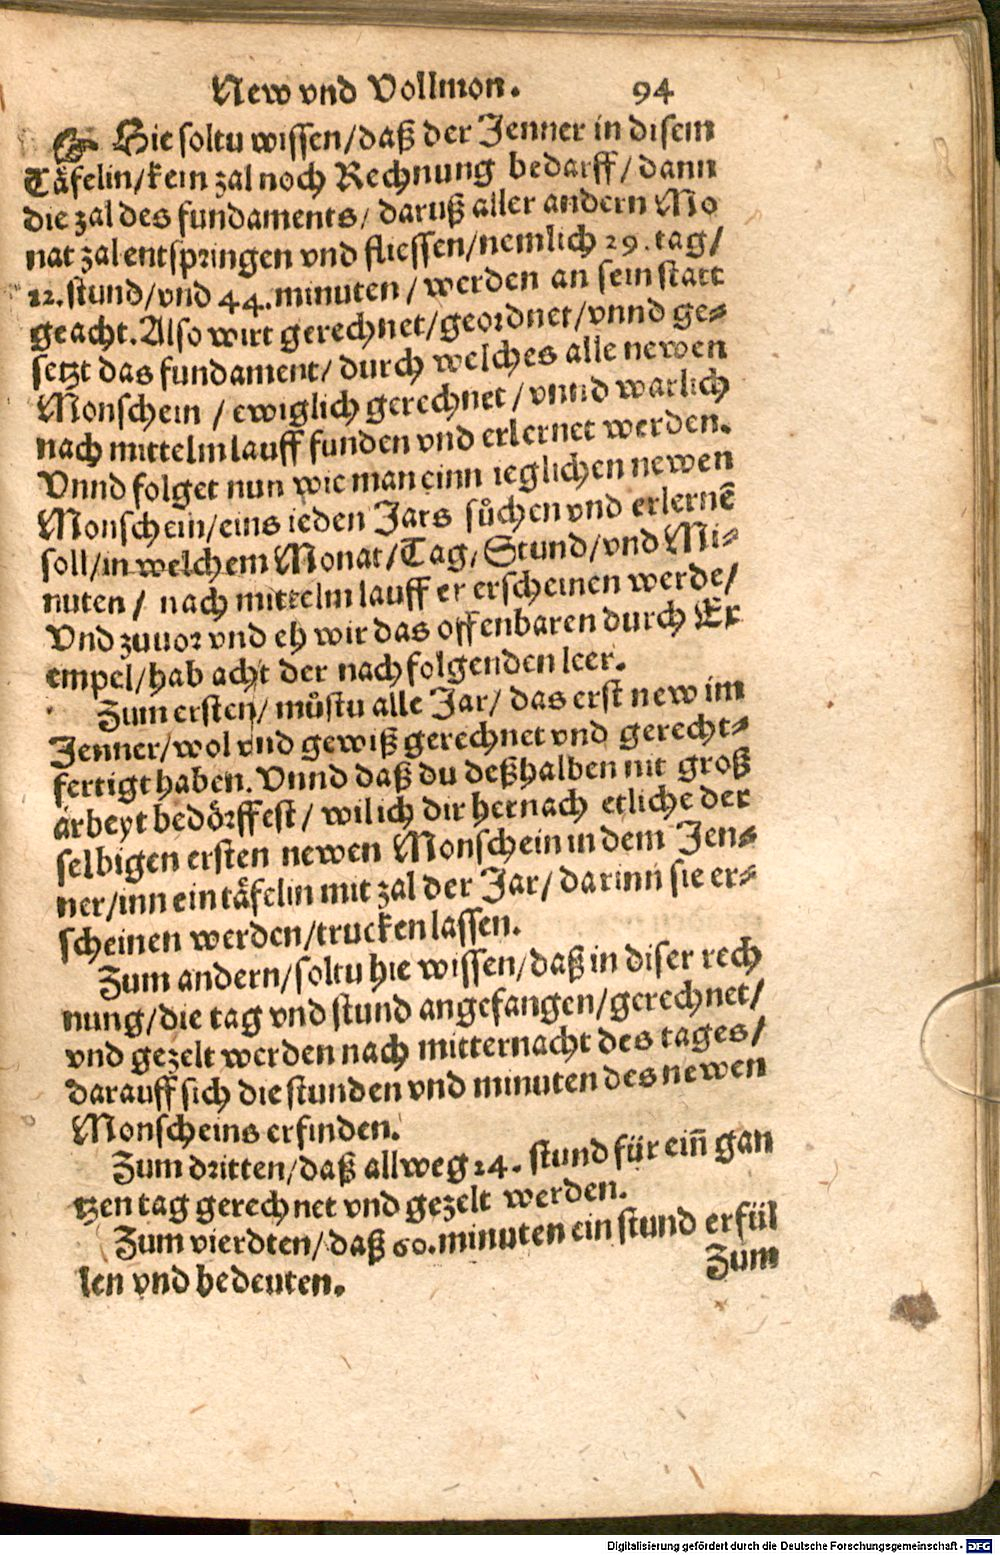 New vnd Vollmon. 94
☞ Hie soltu wissen/daß der Jenner in disem
Täfelin/kein zal noch Rechnung bedarff/dann
die zal des fundaments/ daruß aller andern Mo
nat zal entspringen vnd fliessen/nemlich 29. tag/
12. stund/vnd 44. minuten/werden an sein statt
geacht. Also wirt gerechnet/geordnet/vnnd ge⸗
setzt das fundament/ durch welches alle newen
Monschein / ewiglich gerechnet/vnnd warlich
nach mittelm lauff funden vnd erlernet werden.
Vnnd folget nun wie man einn ieglichen newen
Monschein/eins ieden Jars sůchen vnd erlernẽ
soll/in welchem Monat/Tag, Stund/vnd Mi⸗
nuten/ nach mittelm lauff er erscheinen werde/
Vnd zuuor vnd eh wir das offenbaren durch Ex
empel/hab acht der nachfolgenden leer.
Zum ersten/ můstu alle Jar/ das erst new im
Jenner/wol vnd gewiß gerechnet vnd gerecht⸗
fertigt haben. Vnnd daß du deßhalben nit groß
arbeyt bedörffest/ wil ich dir hernach etliche der
selbigen ersten newen Monschein in dem Jen⸗
ner/inn ein täfelin mit zal der Jar/ darinn sie er⸗
scheinen werden/trucken lassen.
Zum andern/soltu hie wissen/daß in diser rech
nung/die tag vnd stund angefangen/gerechnet/
vnd gezelt werden nach mitternacht des tages/
darauff sich die stunden vnd minuten des newen
Monscheins erfinden.
Zum dritten/daß allweg 24. stund für ein̄ gan
tzen tag gerechnet vnd gezelt werden.
Zum vierdten/daß 60. minuten ein stund erfül
len vnd bedeuten.
Zum
Digitalisierung gefördert durch die Deutsche Forschungsgemeinschaft - DFG